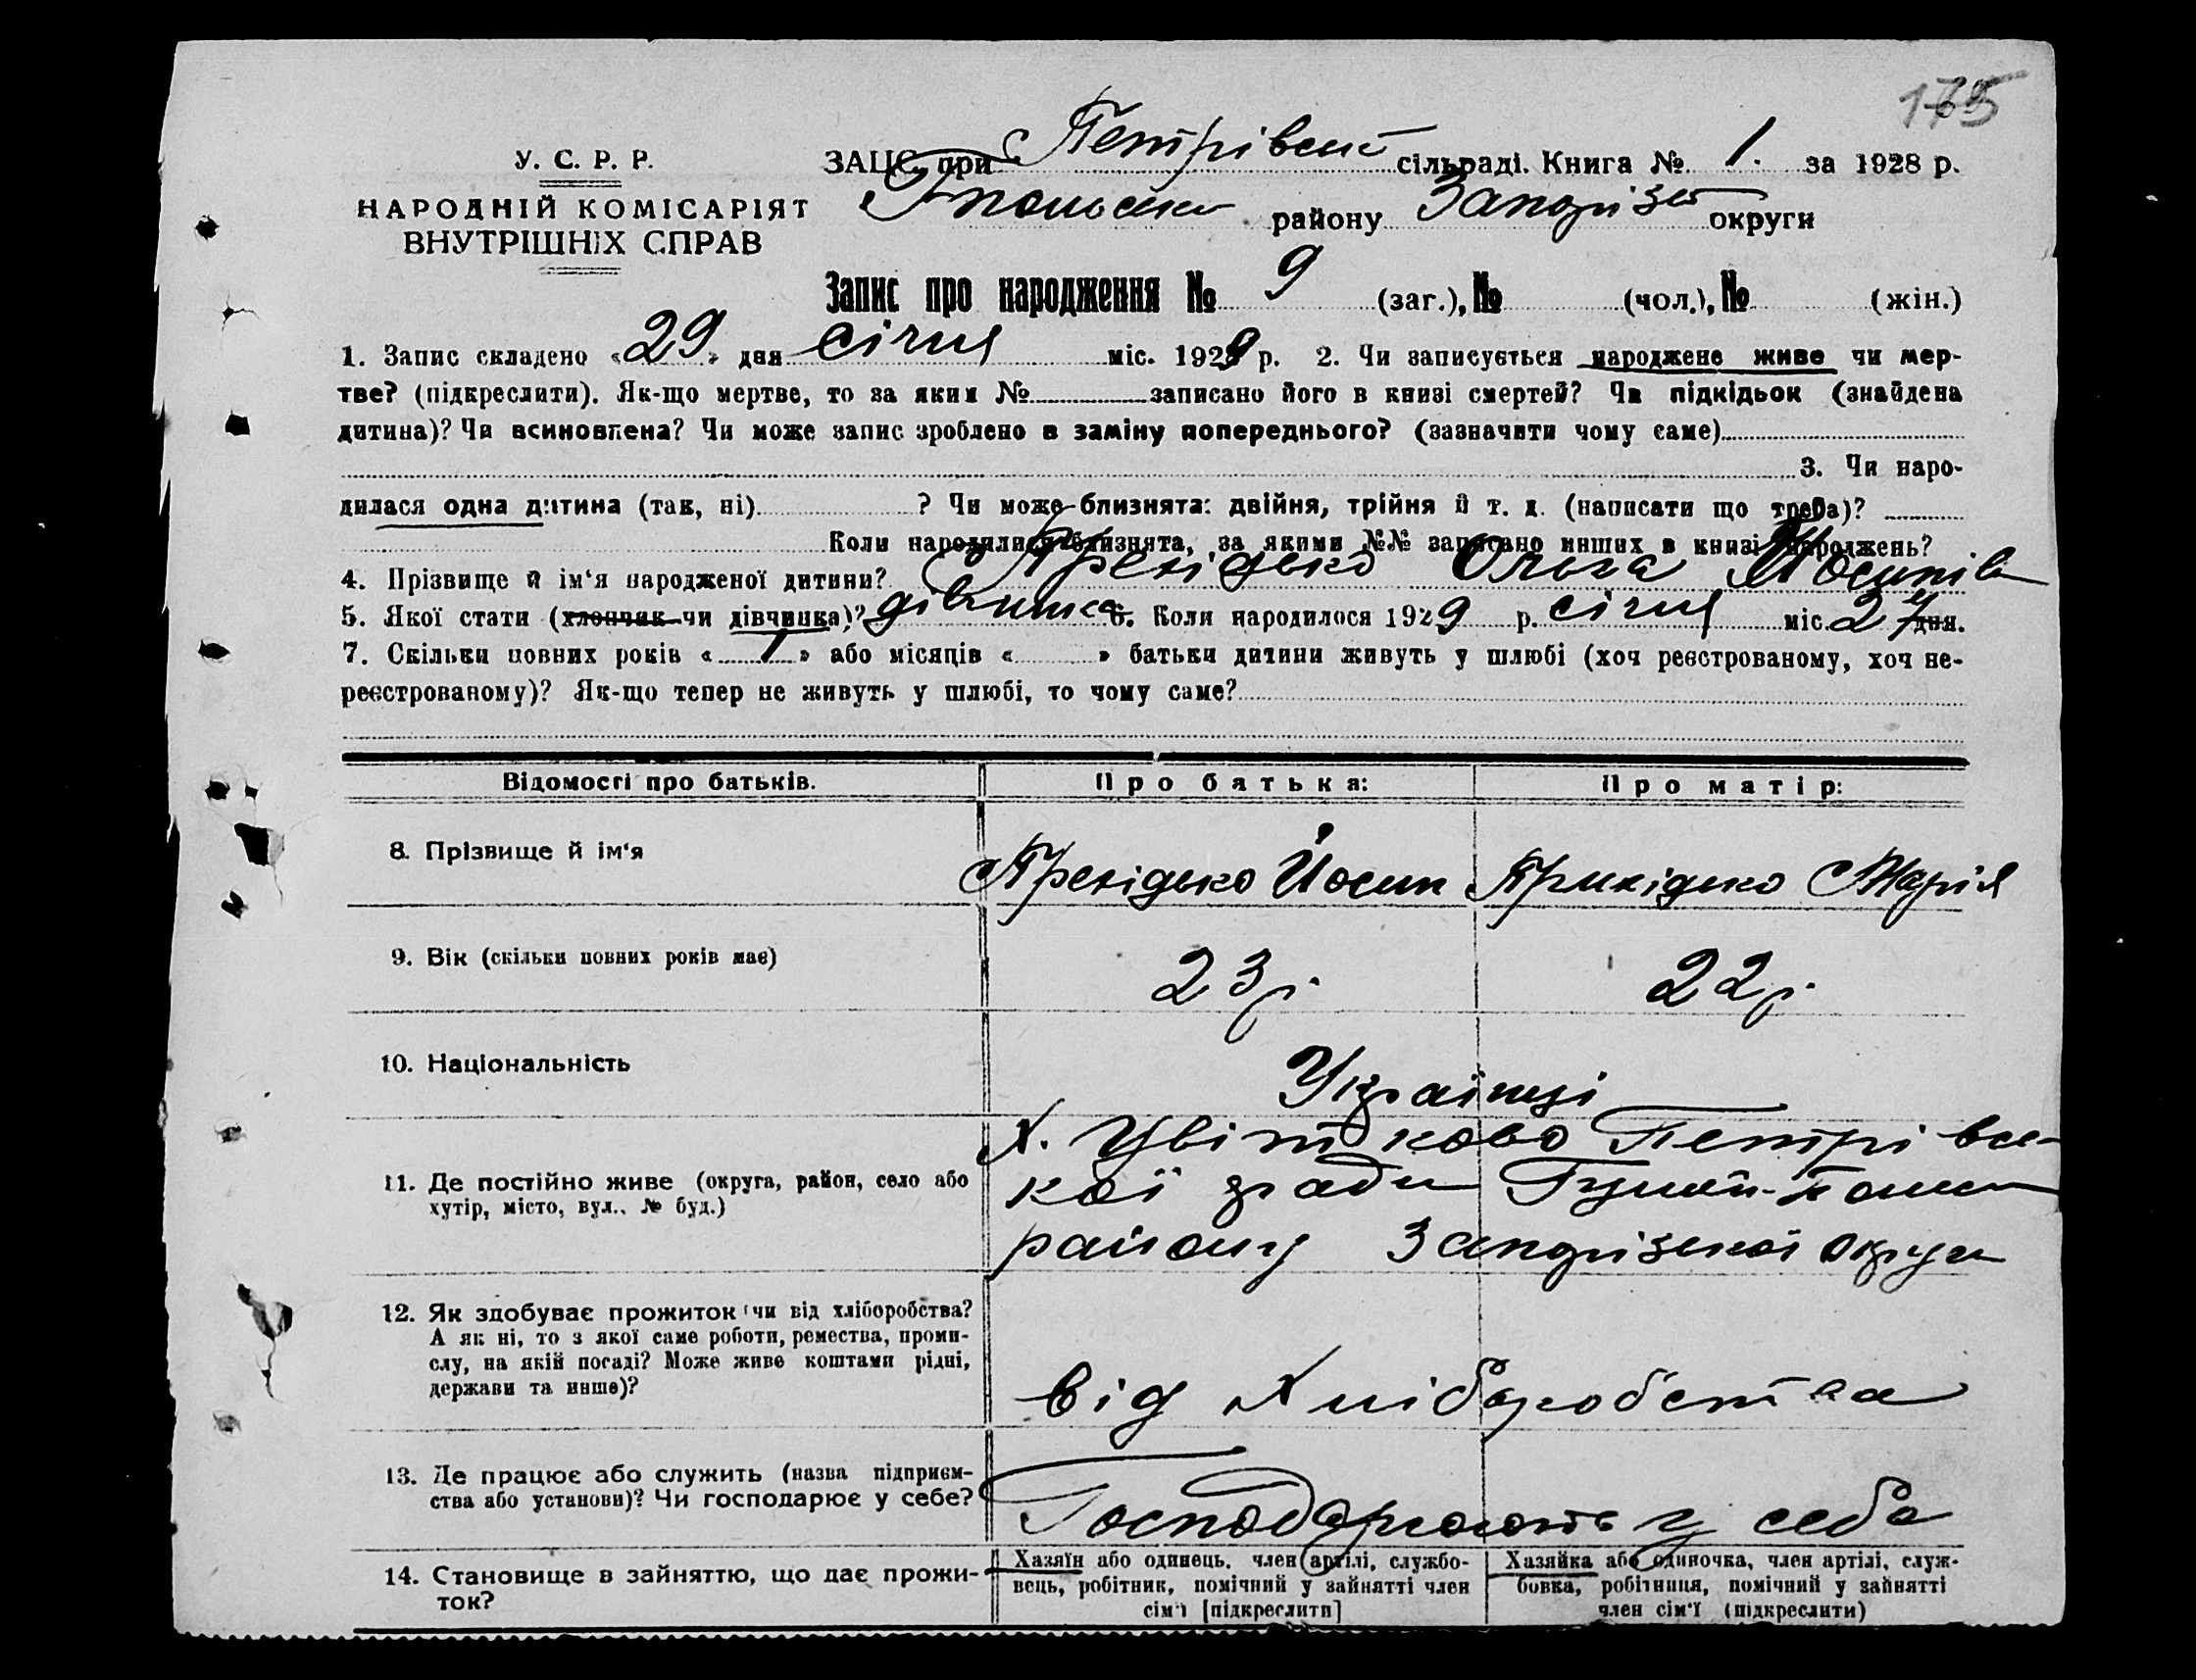 175
У. С. Р. Р.
НАРОДНІЙ КОМІСАРІЯТ
ВНУТРІШНІХ СПРАВ
ЗАЦС при Петрівськ сільраді. Книга № 1. за 1928 р.
району Запоріз округи
Запис про народження № 9 (заг.), № (чол.), № (жін.)
1. Запис складено «29» дня січня міс. 1929 р. 2. Чи записується народжене живе чи мер-
тве? (підкреслити). Як-що мертве, то за яким № записано його в книзі смертей? Чи підкідьок (знайдена
дитина)? Чи всиновлена? Чи може запис зроблено в заміну попереднього? (зазначити чому саме)
3. Чи наро-
дилася одна дитина (так, ні) ? Чи може близнята: двійня, трійня й т. д. (написати що треба)?
Коли народилися близнята, за якими №№ записано инших в книзі народжень?
4. Прізвище й ім‘я народженої дитини? Ольга Йосипів
5. Якої стати (хлопчик чи дівчинка)? дівчинка 6. Коли народилося 1929 р. січня міс. 27 дня.
7. Скільки повних років «1» або місяців « » батьки дитини живуть у шлюбі (хоч реєстрованому, хоч не-
реєстрованому)? Як-що тепер не живуть у шлюбі, то чому саме?
Відомості про батьків.
Про батька:
Про матір:
8. Прізвище й ім‘я
Йосип
Марія
9. Вік (скільки повних років має)
23 р.
22 р.
10. Національність
Українці
11. Де постійно живе (округа, район, село або
хутір, місто, вул., № буд.)
Х. Цвітково Петрівсь
кої ради
району Запорізької округи
12. Як здобуває прожиток чи від хліборобства?
А як ні, то з якої саме роботи, ремества, проми-
слу, на якій посаді? Може живе коштами рідні,
держави та инше)?
Від Хліборобства
13. Де працює або служить (назва підприєм-
ства або установи)? Чи господарює у себе?
Господарюють у себе
14. Становище в зайняттю, що дає прожи-
ток?
Хазяїн або одинець, член артілі, службо-
вець, робітник, помічний у зайнятті член
сім‘ї [підкреслити]
Хазяйка або одиночка, член артілі, служ-
бовка, робітниця, помічний у зайнятті
член сім‘ї (підкреслити)